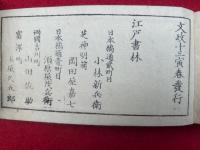 文政十三寅春發行
江戸書林
日本橋通貳町目
小林新兵衛
芝神明前
岡田屋嘉七
日本橋通壹町目
須原屋茂兵衛
両國吉川町
山田佐助